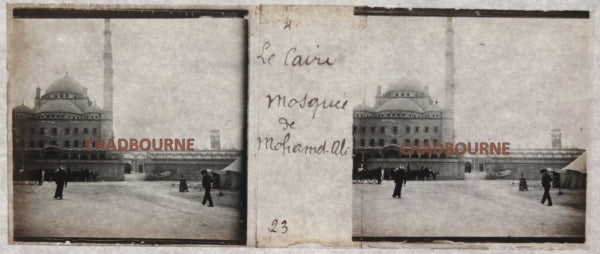 4
Le Caire
Mosquée
de
Mohamd Ali
23
CHADBOURNE
CHADBOURNE